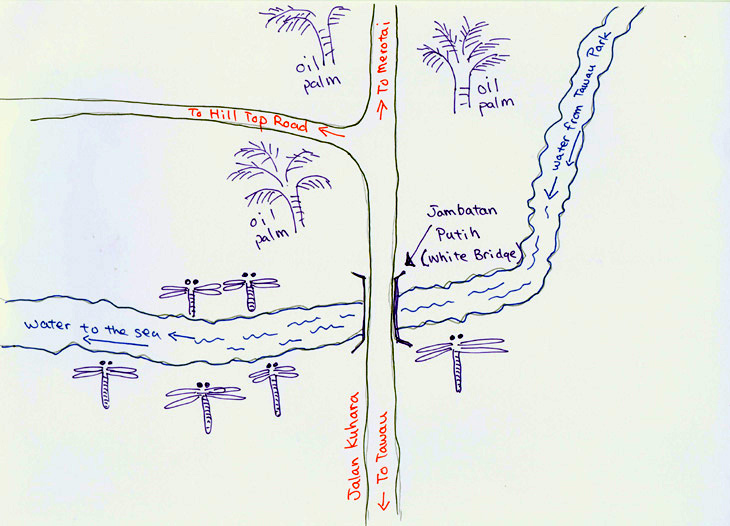 oil
palm
→ To Merotai
oil
palm
water from Tawau Park
To Hill Top Road
oil
palm
Jambatan
Putih
(White Bridge)
water to the sea
Jalan Kuhara
← To Tawau